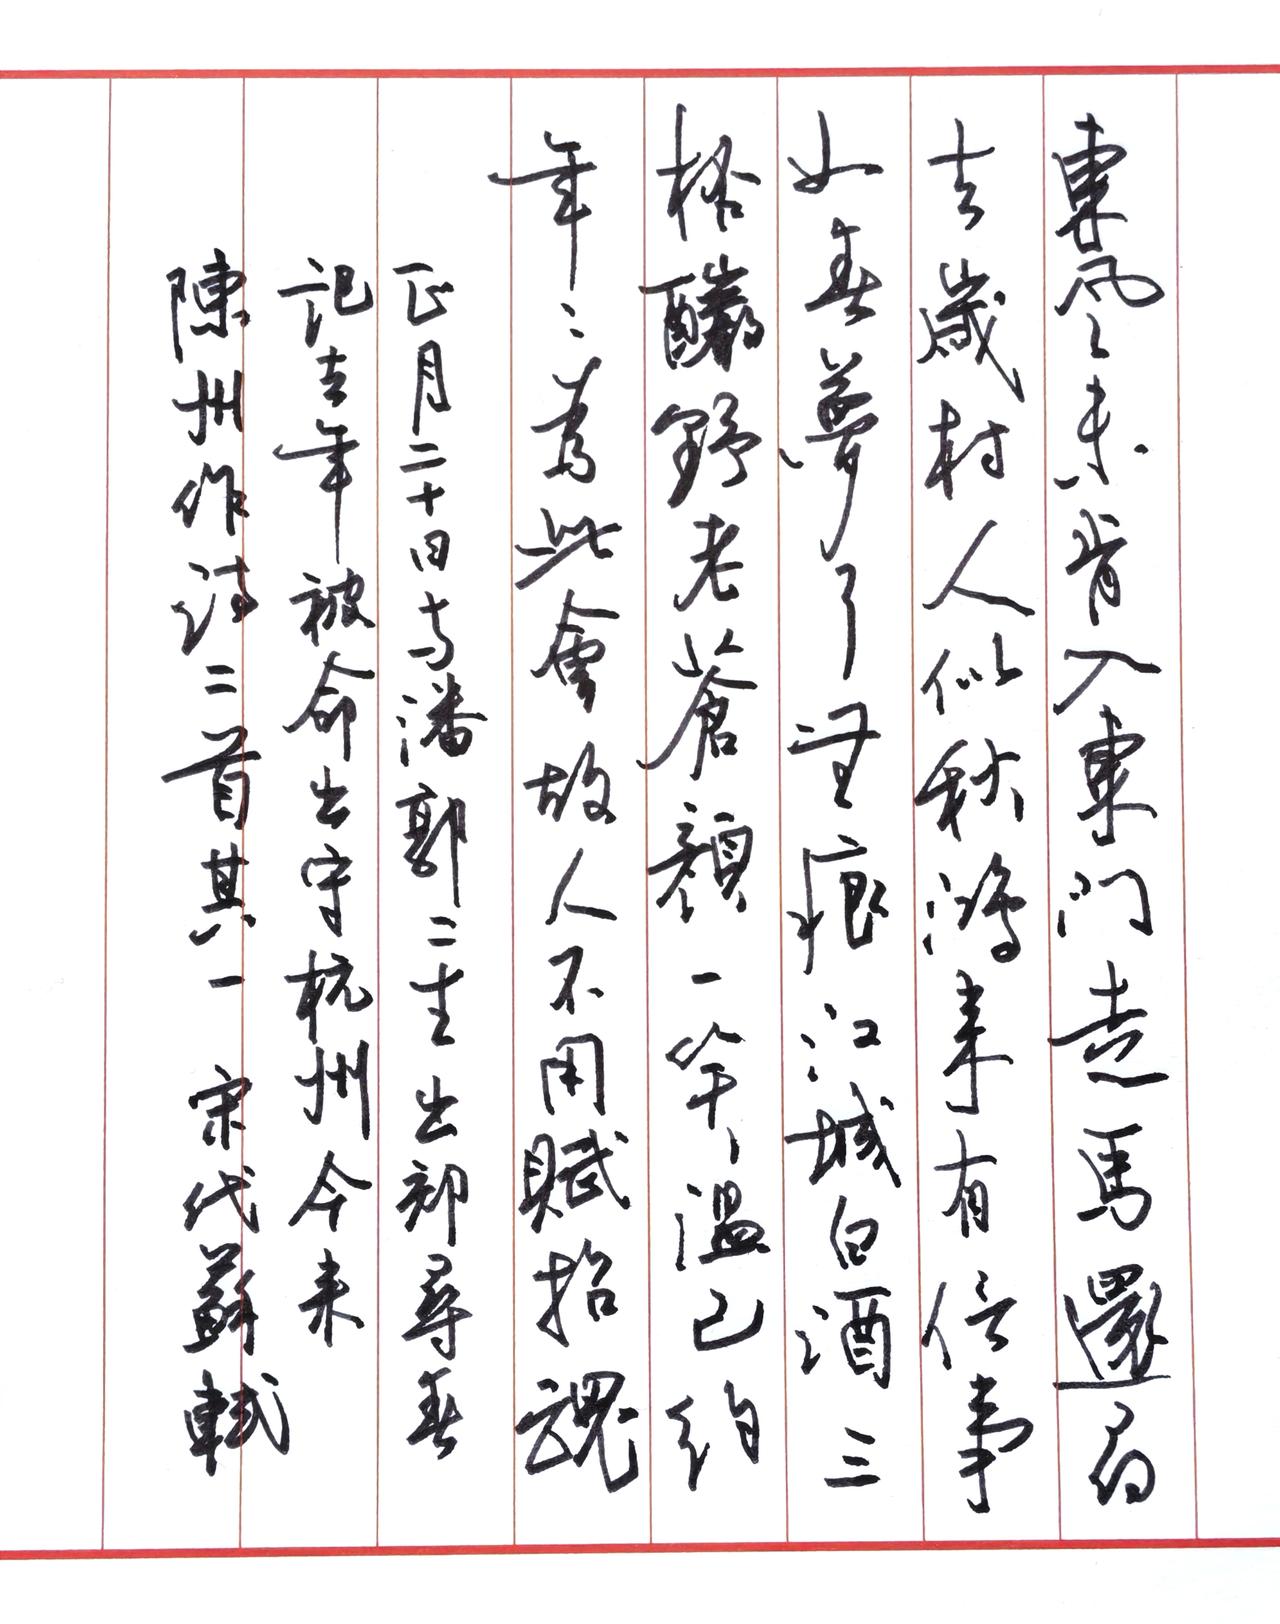 東風未肯入東門走馬還尋
去歲村人似秋鴻來有信事
如春夢了無痕江城白酒三
桮釅野老蒼顏一笑溫已約
年〻為此會故人不用賦招魂
正月二十日与潘郭二生出郊尋春
記去年被命出守杭州今来
陳州作詩二首其一 宋代蘇軾